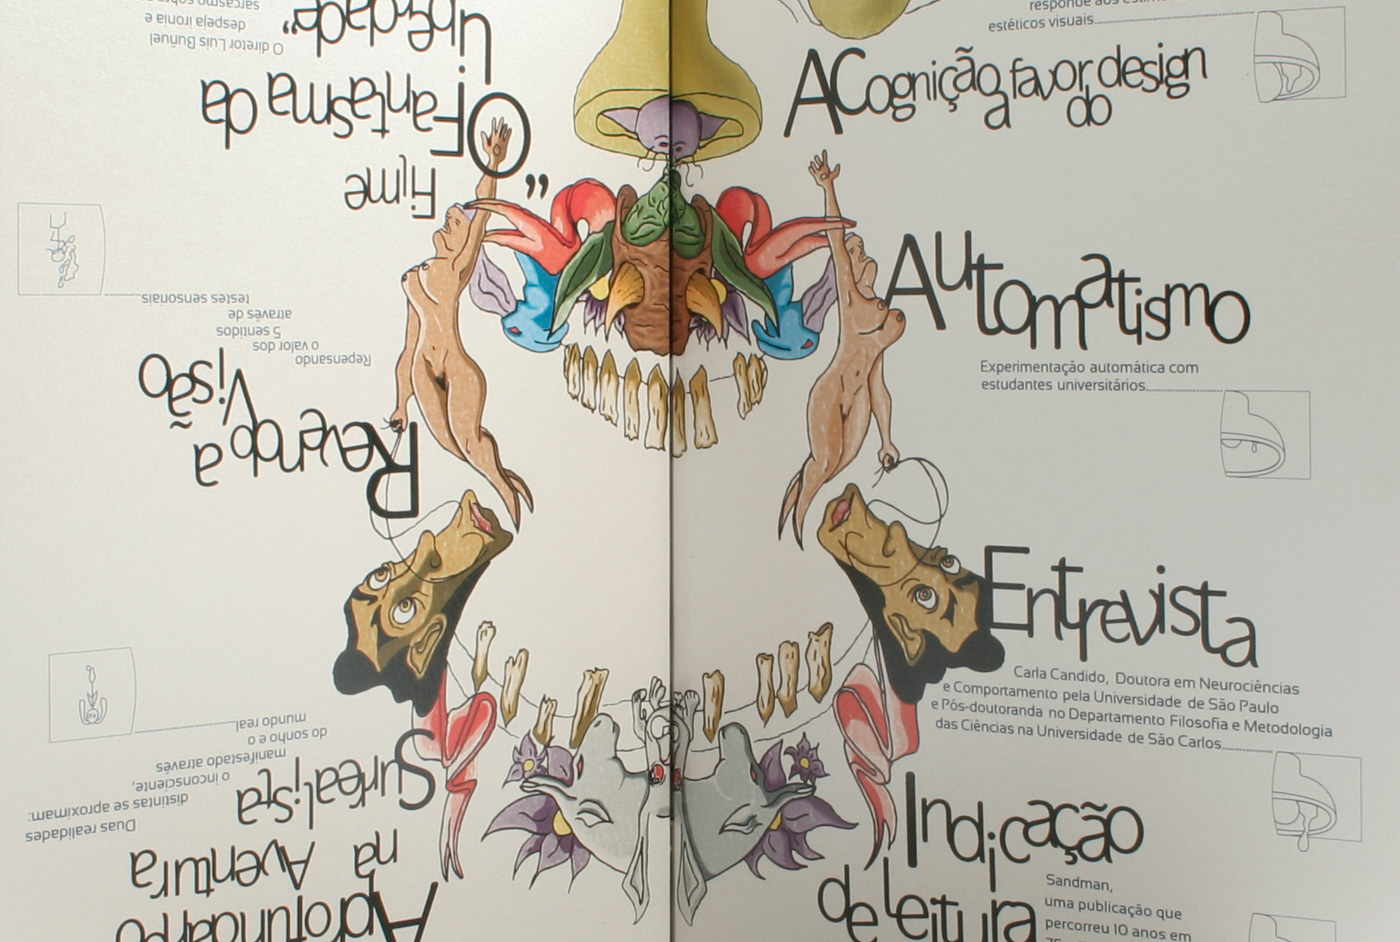 Aprofundando
na Aventura
Surrealista
Duas realidades
distintas se aproximam:
o inconsciente,
manifestado através
do sonho e o
mundo real
Revendo a
Visão
Repensando
o valor dos
5 sentidos
através de
testes sensoriais
Filme
"O Fantasma da
Liberdade"
O diretor Luis Buñuel
despeja ironia e
sarcasmo
responde aos
estéticos visuais
A Cognição a favor do design
Automatismo
Experimentação automática com
estudantes universitários
Entrevista
Carla Candido, Doutora em Neurociências
e Comportamento pela Universidade de São Paulo
e Pós-doutoranda no Departamento Filosofia e Metodologia
das Ciências na Universidade de São Carlos
Indicação
de leitura
Sandman,
uma publicação que
percorreu 10 anos em